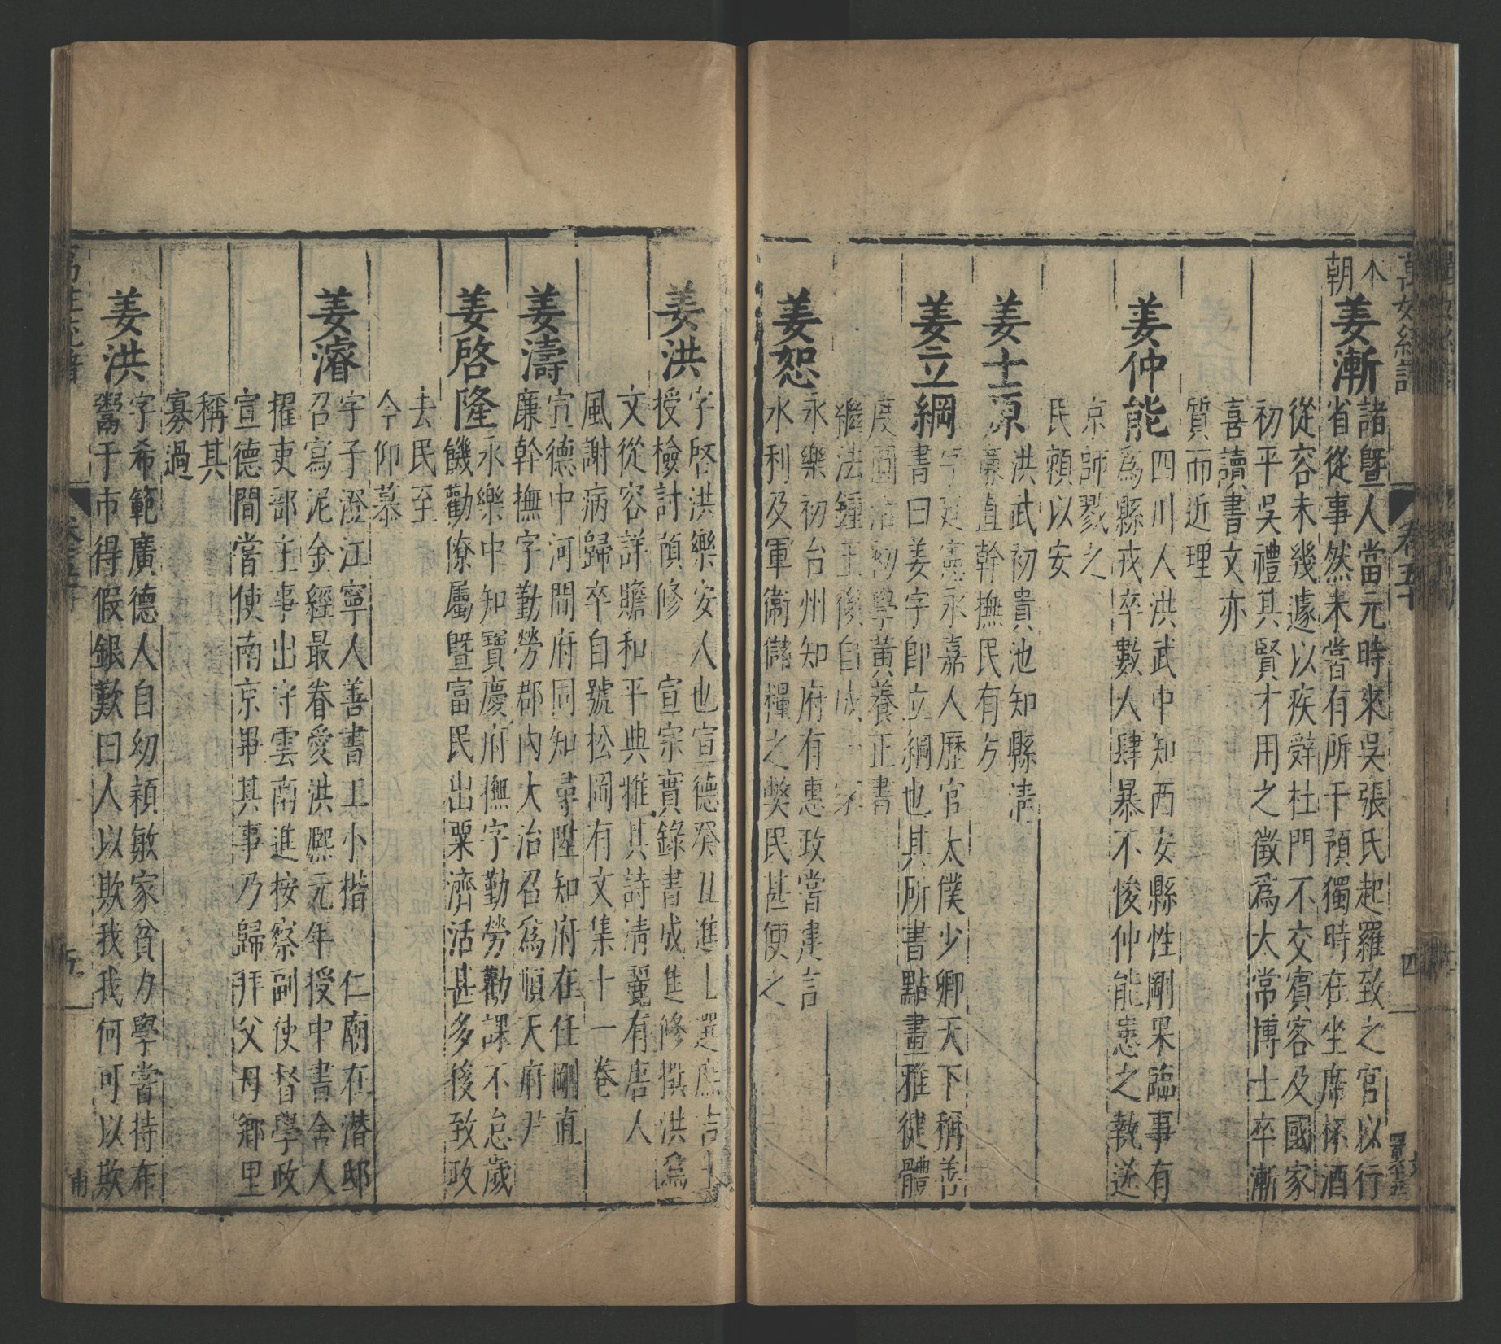 萬姓統譜
卷五十
四
本朝
姜漸
諸暨人當元時來吳張氏起羅致之官以行
省從事然未嘗有所干預獨時在坐席杯酒
從容未幾遽以疾辭杜門不交賓客及國家
初平吳禮其賢才用之徵爲太常博士卒漸
喜讀書文亦
質而近理
姜仲能
四川人洪武中知西安縣性剛果臨事有
爲縣戍卒數人肆暴不悛仲能恚之執送
京師戮之
民賴以安
姜士原
洪武初貴池知縣清
廉直幹撫民有方
姜立綱
字廷憲永嘉人歷官太僕少卿天下稱善
書曰姜字即立綱也其所書點畫雅健體
度圓活初學黃養正書
繼法鍾王後自成一家
姜恕
永樂初台州知府有惠政嘗建言
水利及軍衛儲糧之獘民甚便之
姜洪
字啓洪樂安人也宣德癸丑進士選庶吉士
授檢討預修 宣宗實錄書成進修撰洪爲
文從容詳贍和平典雅其詩清麗有唐人
風謝病歸卒自號松岡有文集十一卷
姜濤
宣德中河間府同知尋陞知府在任剛直
廉幹撫字勤勞郡内大治召爲順天府尹
姜啓隆
永樂中知寶慶府撫字勤勞勸課不怠歲
饑勸僚屬暨富民出粟濟活甚多後致政
去民至
今仰慕
姜濬
字子澄江寧人善書工小楷 仁廟在潛邸
召寫泥金經最眷愛洪熙元年授中書舍人
擢吏部主事出守雲南進按察副使督學政
宣德間嘗使南京畢其事乃歸拜父母鄉里
稱其
寡過
姜洪
字希範廣德人自幼穎敏家貧力學嘗持布
鬻于市得假銀歎曰人以欺我我何可以欺
萬姓統譜
五